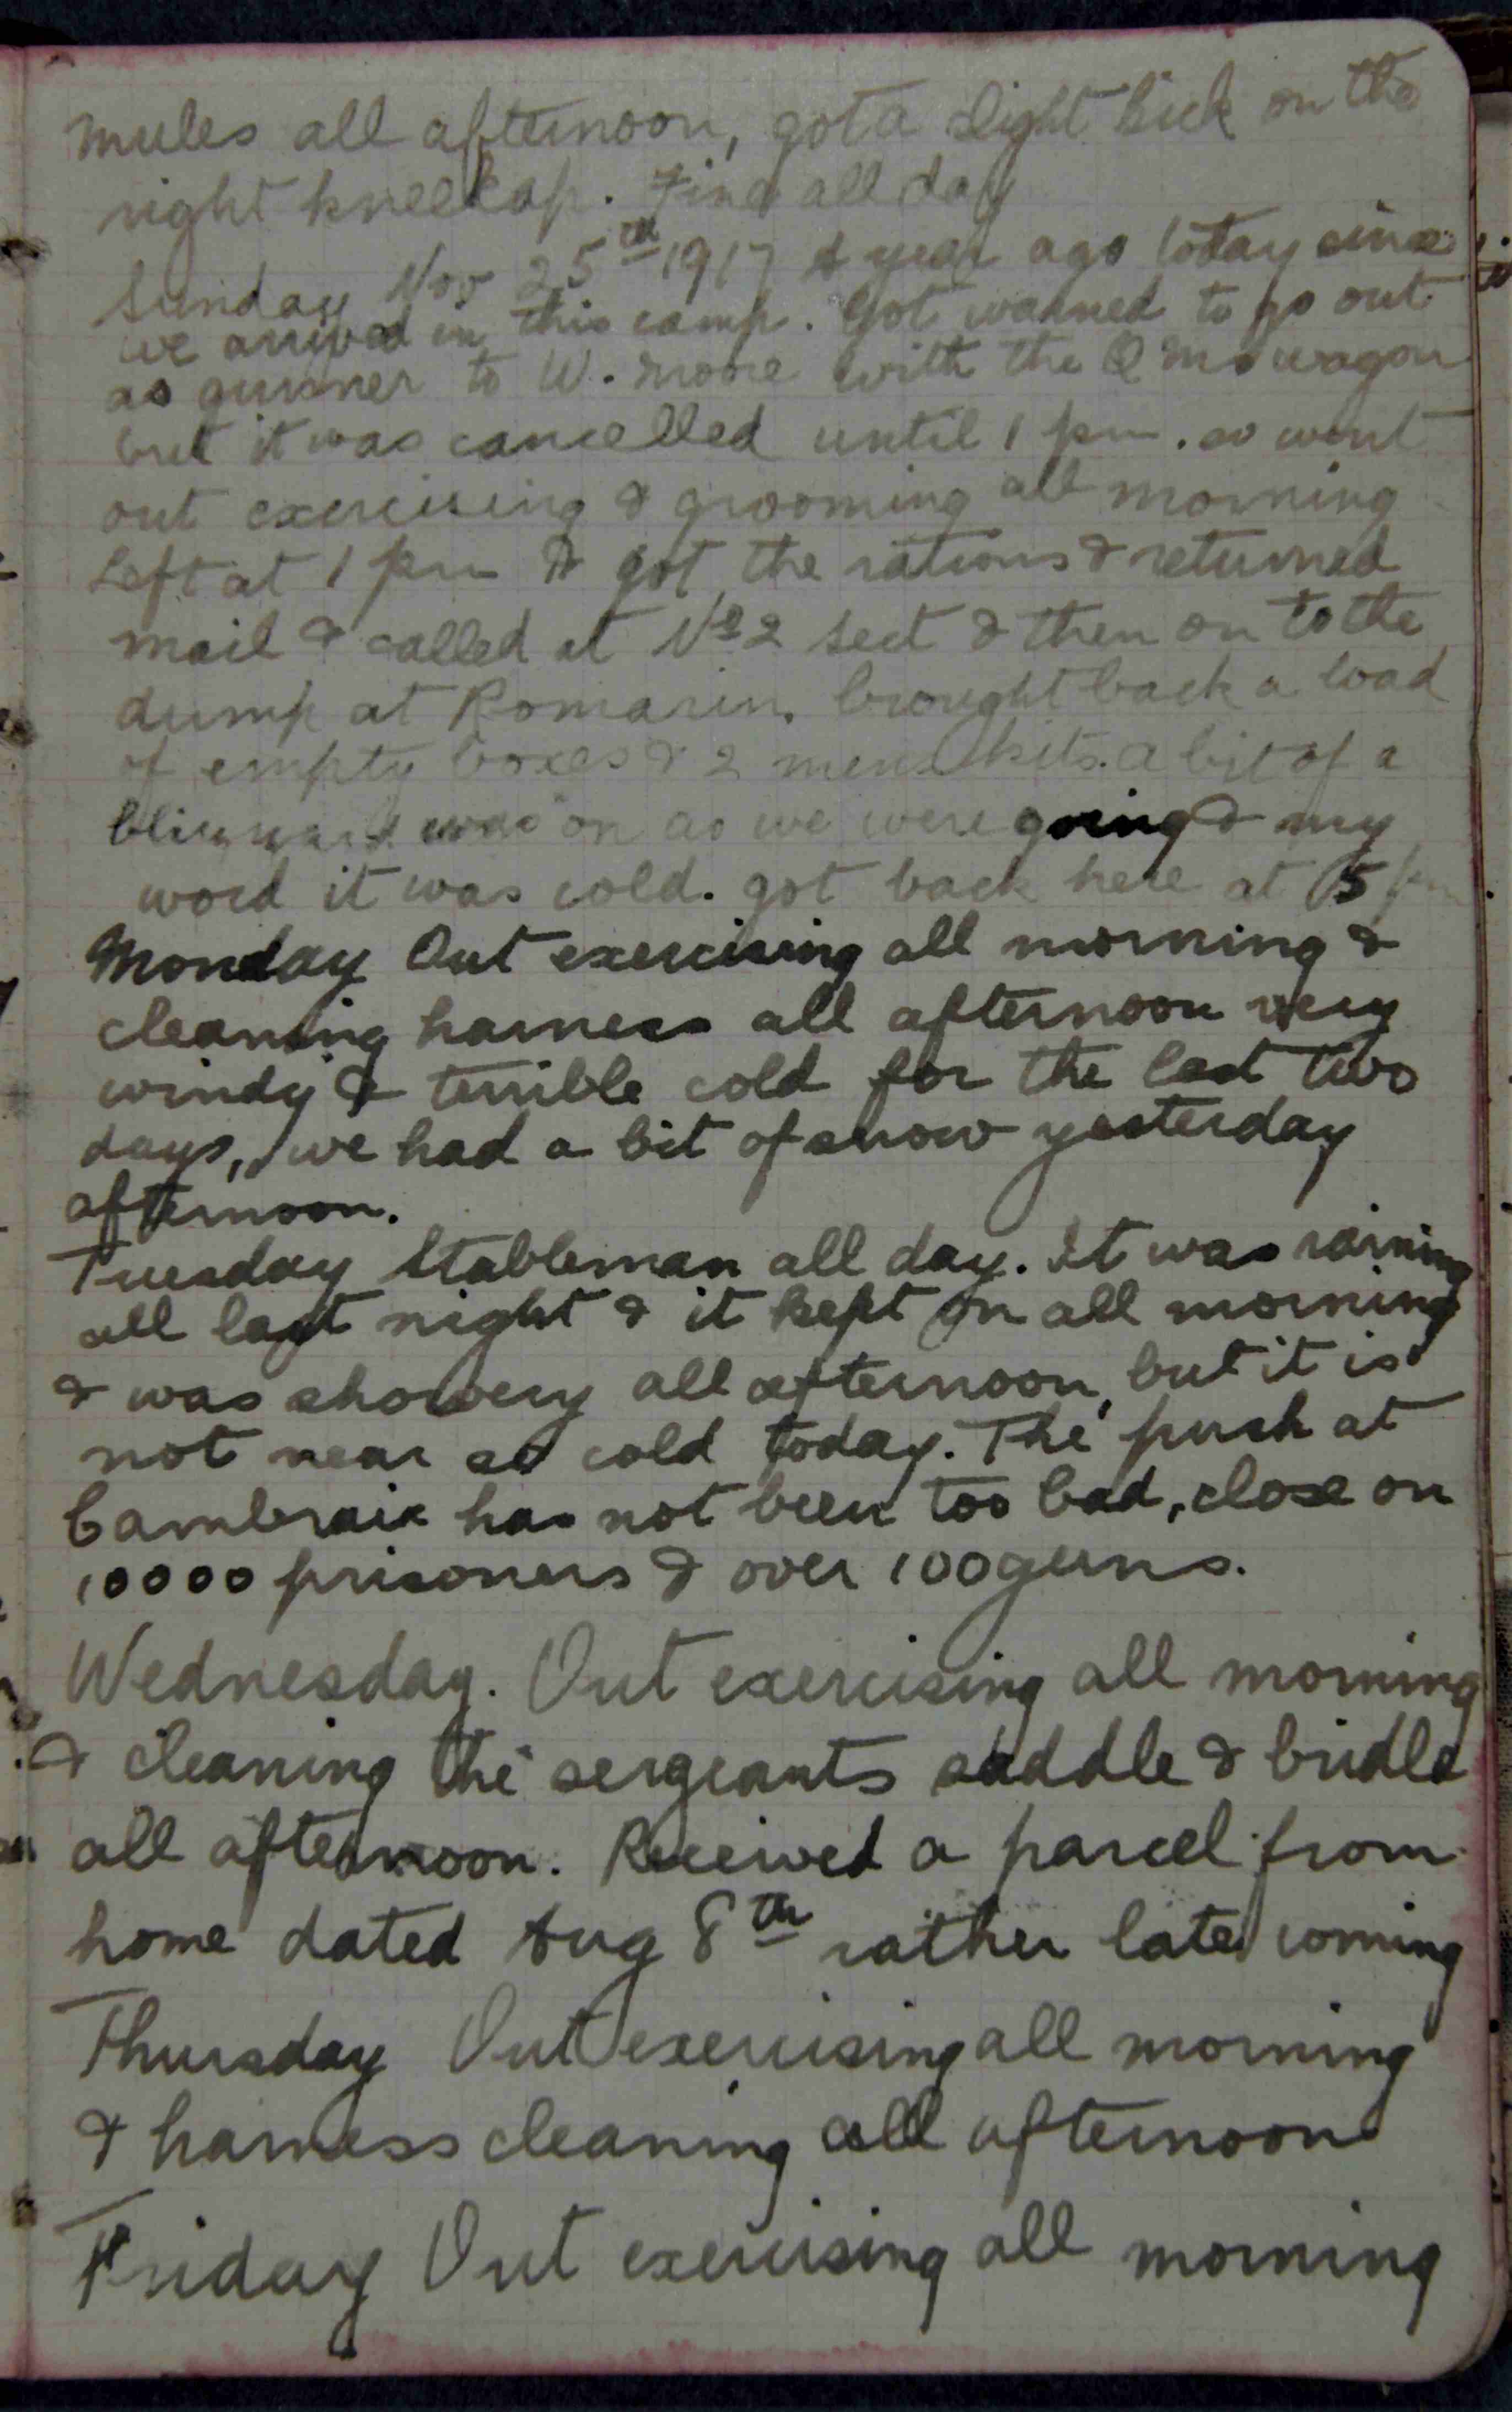 mules all afternoon, got a slight kick on the
right kneecap. Fine all day
Sunday Nov 25th 1917 A year ago today since
we arrived in this camp. Got warned to go out
as gunner to W. Moore with the Q M s wagon
but it was cancelled until 1 pm. so went
out exercising & grooming all morning
Left at 1 pm & got the rations & returned
mail & called at No 2 Sect & then on to the
dump at Romarin. brought back a load
of empty boxes & 2 mens kits. a bit of a
was on as we were going & my
word it was cold. got back here at 5 pm
Monday Out exercising all morning &
cleaning harness all afternoon very
windy & terrible cold for the last two
days, we had a bit of snow yesterday
afternoon.
Tuesday Stableman all day. It was raining
all last night & it kept on all morning
& was showery all afternoon, but it is
not near so cold today. The push at
Cambraie has not been too bad, close on
10000 prisoners & over 100 guns.
Wednesday. Out exercising all morning
& cleaning the sergeants saddle & bridle
all afternoon. Received a parcel from
home dated Aug 8th rather late coming
Thursday Out exercising all morning
& harness cleaning all afternoon
Friday Out exercising all morning